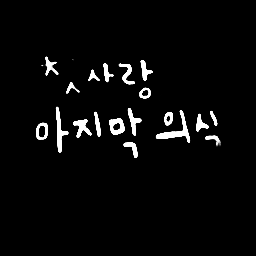 첫사랑
마지막 의식